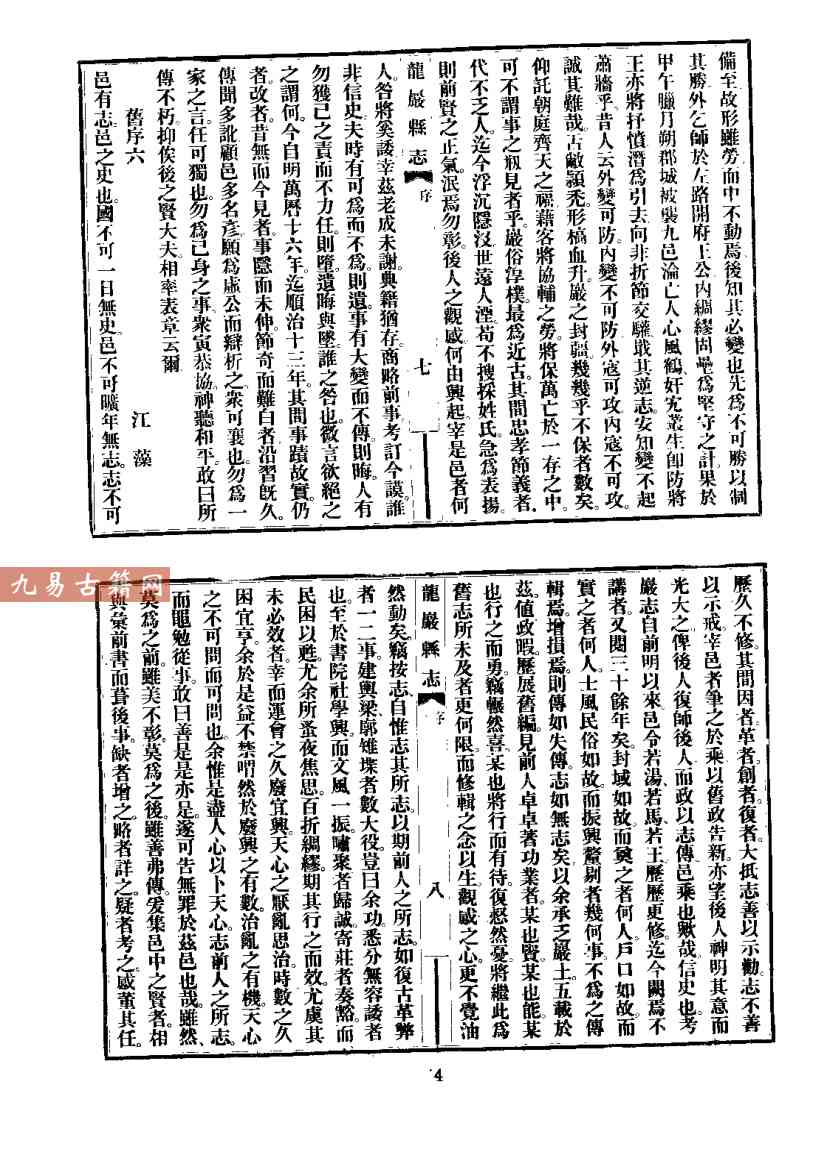 備至故形雖勞而中不動焉後知其必變也先爲不可勝以制
其勝外乞師於左路開府王公內綢繆固壘爲堅守之計果於
甲午臘月朔郡城被襲九邑淪亡人心風鶴奸宄叢生卽防將
王亦將抒憤潛爲引去向非折節交驩戢其逆志安知變不起
蕭牆乎昔人云外變可防內變不可防外寇可攻內寇不可攻
誠其難哉古敝潁禿形槁血升巖之封疆幾幾乎不保者數矣
仰託朝庭齊天之福藉客將協輔之勞將保萬亡於一存之中
可不謂事之剏見者乎巖俗淳樸最爲近古其間忠孝節義者
代不乏人迄今浮沉隱沒世遠人湮苟不搜採姓氏急爲表揚
則前賢之正氣泯焉勿彰後人之觀感何由興起宰是邑者何
龍巖縣志 序 七
人咎將奚諉幸茲老成未謝典籍猶存商略前事考訂今謨誰
非信史夫時有可爲而不爲則遺事有大變而不傳則晦人有
勿獲已之責而不力任則墮遺晦與墜誰之咎也微言欲絕之
之謂何今自明萬曆十六年迄順治十三年其間事蹟故實仍
者改者昔無而今見者事隱而未伸節奇而難白者沿習旣久
傳聞多訛顧邑多名彥願爲虛公而辯析之衆可襄也勿爲一
家之言任可獨也勿爲已身之事衆寅恭協神聽和平敢曰所
傳不朽抑俟後之賢大夫相率表章云爾
舊序六 江藻
邑有志邑之史也國不可一日無史邑不可曠年無志志不可
歷久不修其間因者革者創者復者大抵志善以示勸志不善
以示戒宰邑者筆之於乘以舊政告新亦望後人神明其意而
光大之俾後人復師後人而政以志傳邑乘也歟哉信史也考
巖志自前明以來邑令若湯若馬若王歷歷更修迄今闕焉不
講者又閱三十餘年矣封域如故而奠之者何人戶口如故而
實之者何人士風民俗如故而振興釐剔者幾何事不爲之傳
輯焉增損焉則傳如失傳志如無志矣以余承乏巖土五載於
茲値政暇歷展舊編見前人卓卓著功業者某也賢某也能某
也行之而勇竊囅然喜某也將行而有待復惄然憂將繼此爲
舊志所未及者更何限而修輯之念以生觀感之心更不覺油
龍巖縣志 序 八
然動矣竊按志自惟志其所志以期前人之所志如復古革弊
者一二事建興梁廓雉堞者數大役豈曰余功悉分無容諉者
也至於書院社學興而文風一振嘯聚者歸誠寄莊者奏豁而
民困以甦尤余所蚤夜焦思百折綢繆期其行之而效尤虞其
未必效者幸而運會之久廢宜興天心之厭亂思治時數之久
困宜亨余於是益不禁喟然於廢興之有數治亂之有機天心
之不可問而可問也余惟是盡人心以卜天心志前人之所志
而黽勉從事敢曰善是是亦是遂可告無罪於茲邑也哉雖然
莫爲之前雖美不彰莫爲之後雖善弗傳爰集邑中之賢者相
與彙前書而葺後事缺者增之略者詳之疑者考之咸董其任
4
九易古籍网